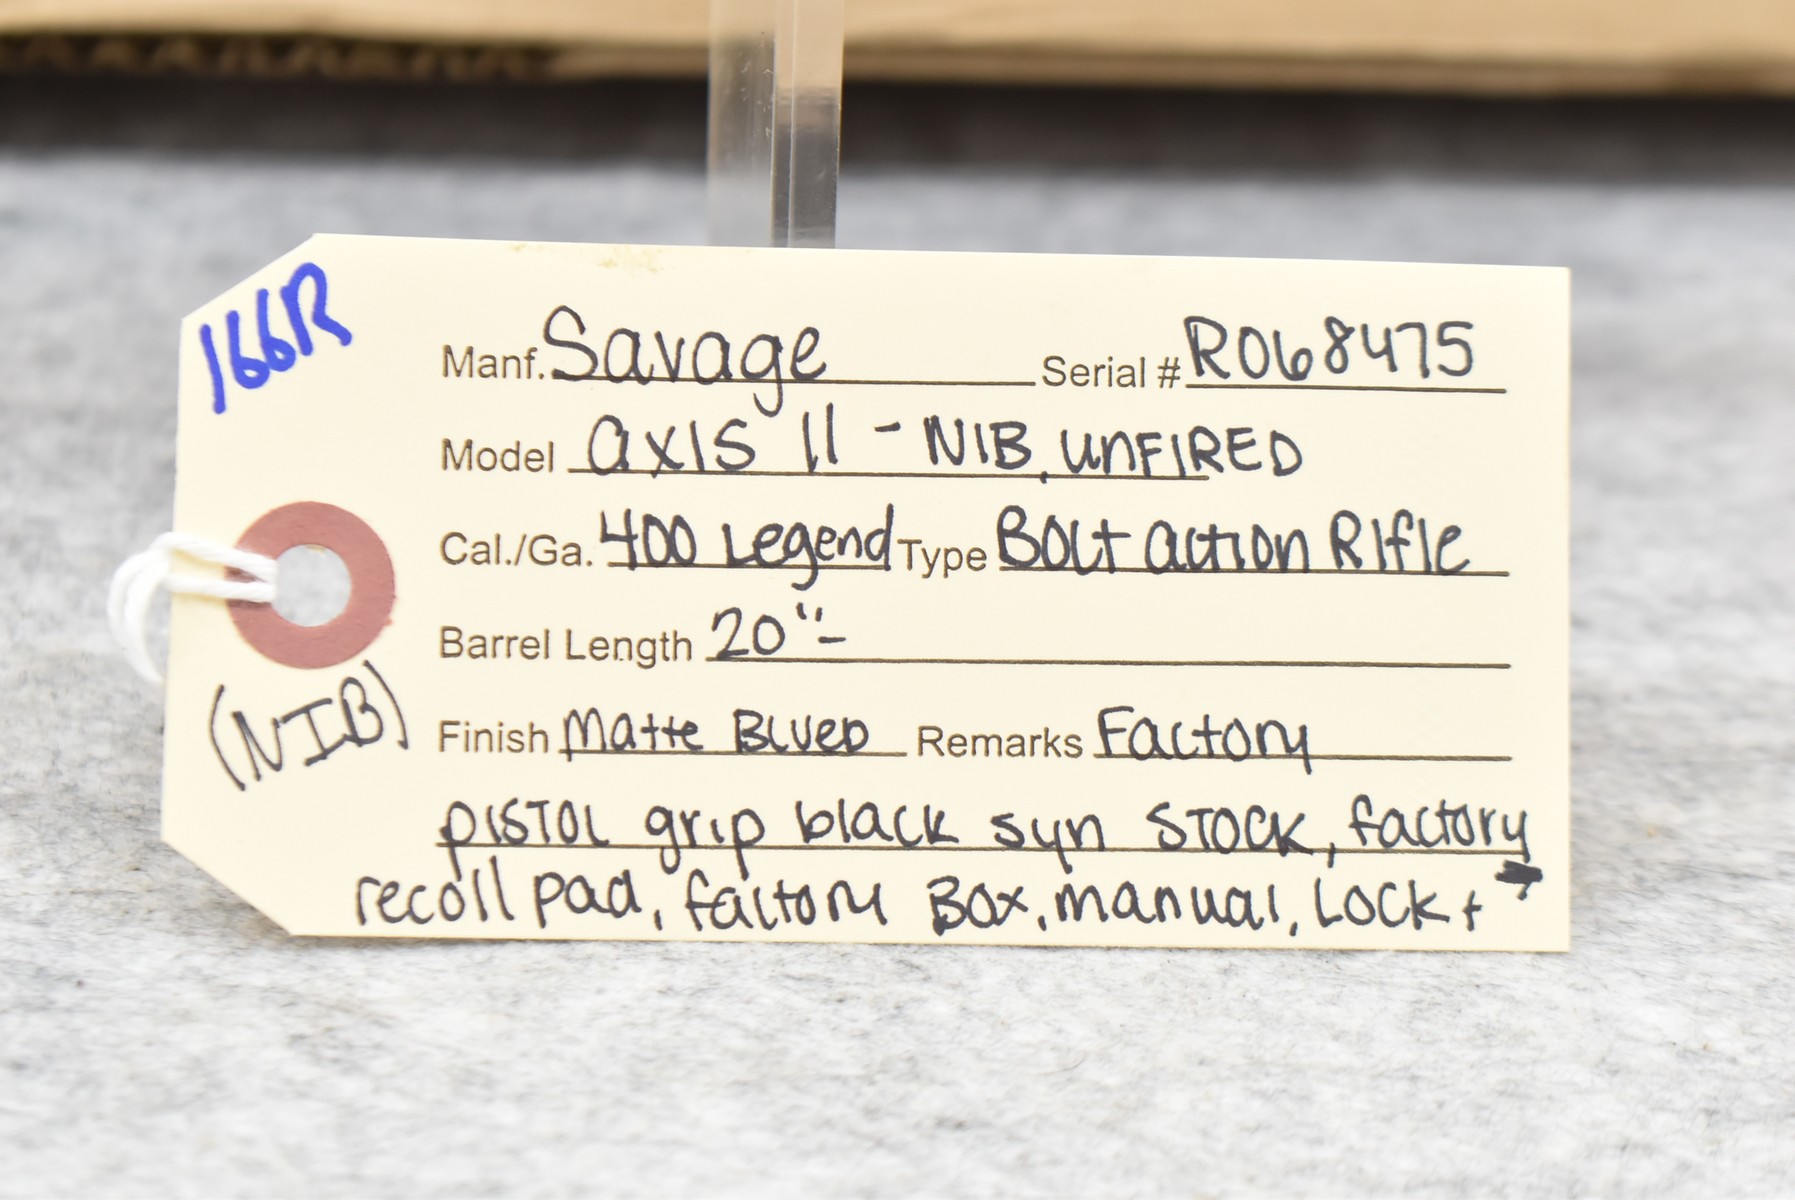 166R
Manf. Savage Serial # R068475
Model axis II - NIB, unFIRED
Cal./Ga. 400 Legend Type Bolt action Rifle
Barrel Length 20"-
(NIB)
Finish Matte Blued Remarks Factory
PISTOL grip black syn STOCK, factory
recoil pad, factory Box, manual, Lock + →